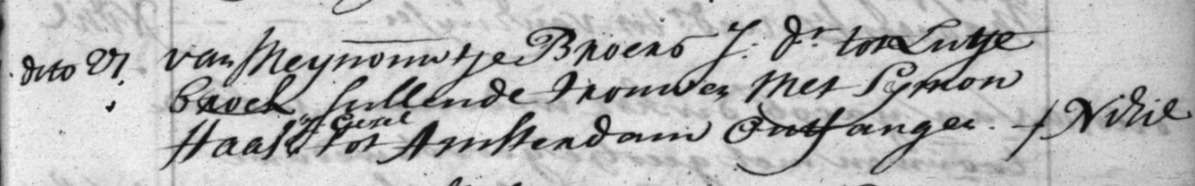 dito 27. van Meynoutje Broers J: dr tot Lutje
broek sullende trouwen met Symon
Haak j: Gesel tot Amsterdam Ontfangen. ƒ Nihil